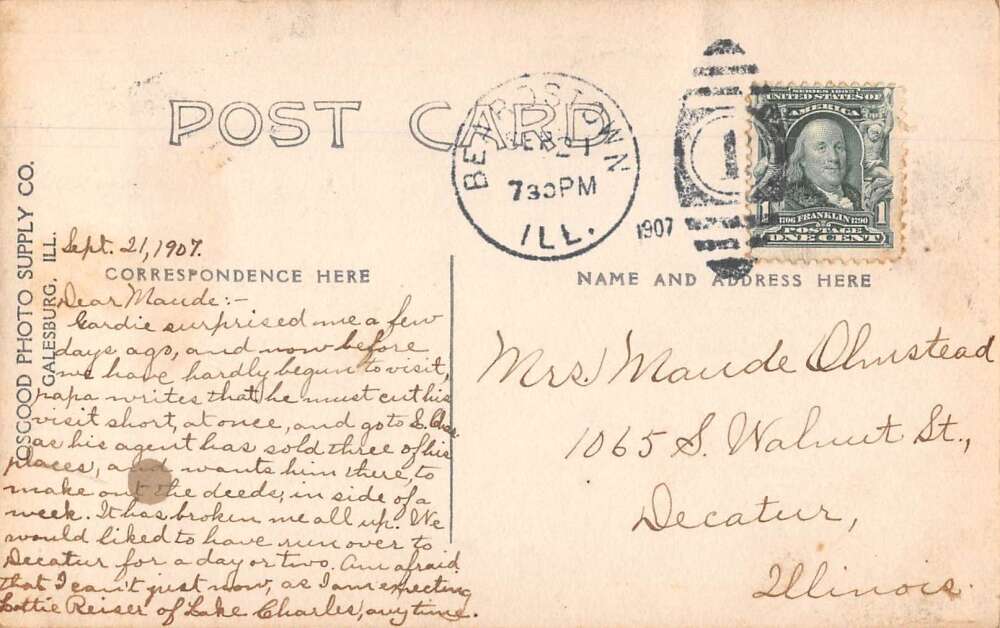 POST CARD
BEARDSTOWN
SEP 21
730PM
ILL.
1907
1
SERIES 1902
UNITED STATES OF
AMERICA
1706 FRANKLIN 1790
1 POSTAGE 1
ONE CENT
OSGOOD PHOTO SUPPLY CO.
GALESBURG, ILL.
Sept. 21, 1907.
CORRESPONDENCE HERE
Dear Maude:-
Gardie surprised me a few
days ago, and now before
we have hardly begun to visit,
papa writes that he must cut his
visit short, at once, and go to L. Chas
as his agent has sold three of his
places, and wants him there, to
make out the deeds, in side of a
week. It has broken me all up. We
would liked to have run over to
Decatur for a day or two. Am afraid
that I can't just now, as I am expecting
Lottie Reiser of Lake Charles, any time.
NAME AND ADDRESS HERE
Mrs. Maude Olmstead
1065 S. Walnut St.,
Decatur,
Illinois.